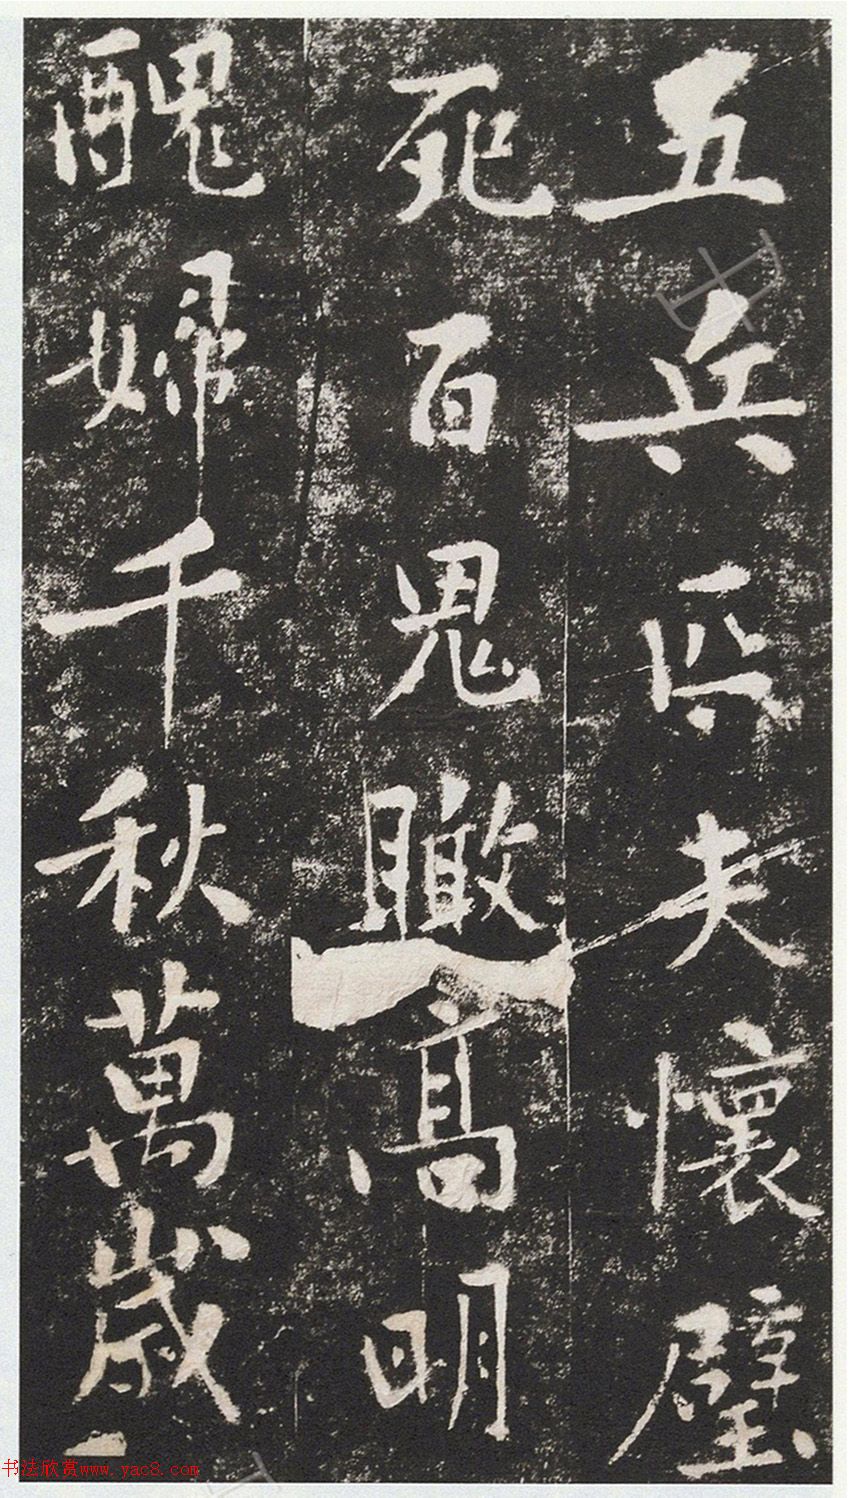 五兵匹夫懷璧
死百鬼瞰高明
醜婦千秋萬歲
书法欣赏www.yac8.com